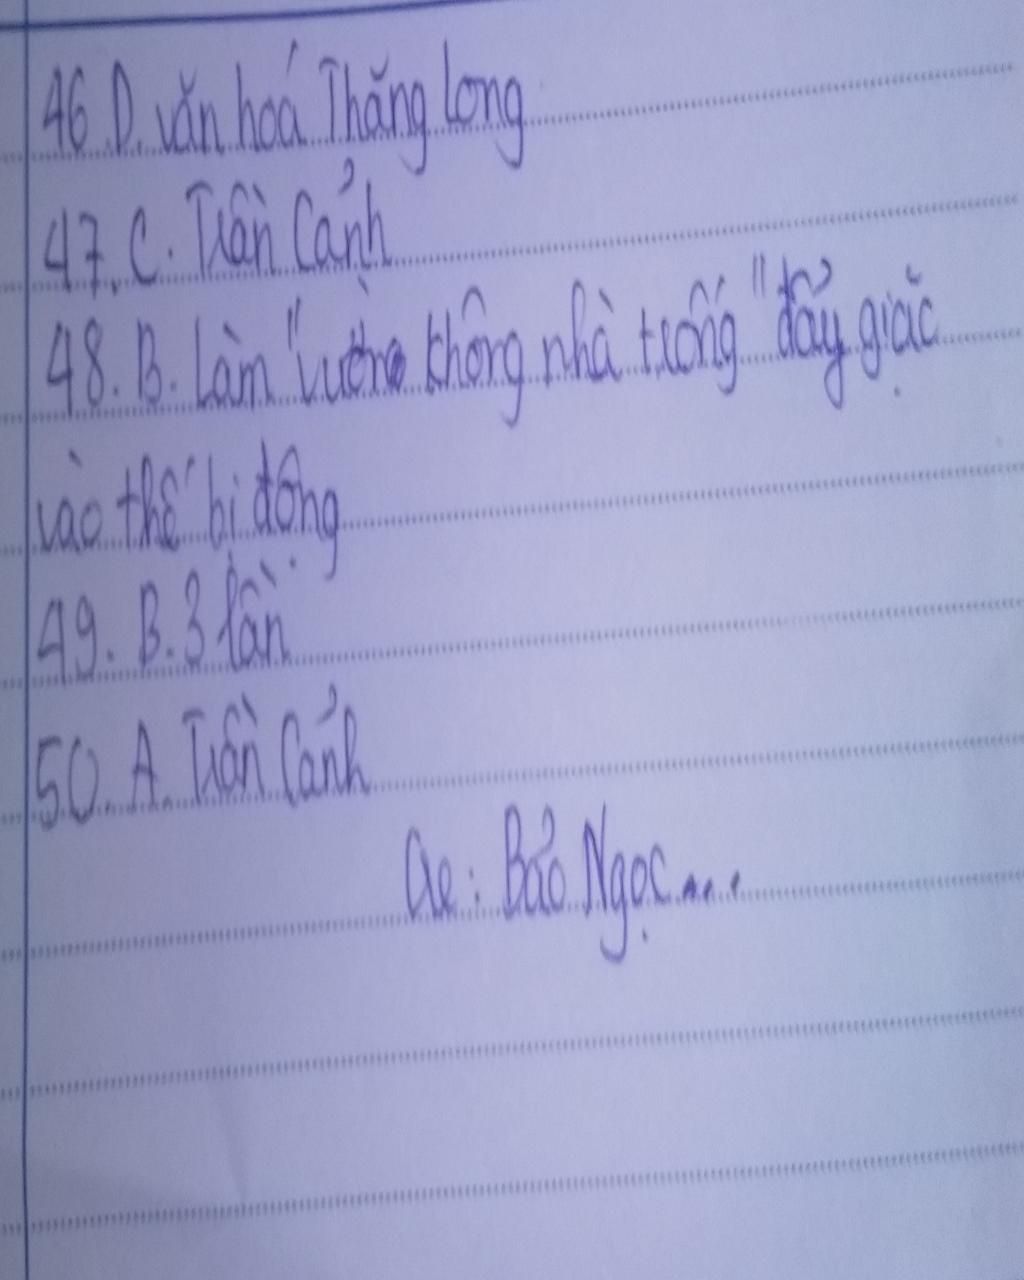 46. D. văn hoá Thăng long
47. C. Trần Cảnh
48. B. Làm "vườn không nhà trống" đẩy giặc
vào thế bị động
49. B. 3 lần
50. A. Trần Cảnh
ae: Bảo Ngọc...